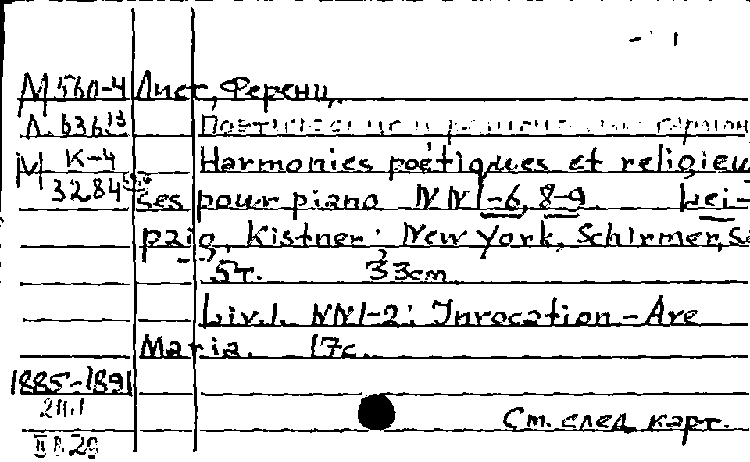 М 560-4 Лист, Ференц.
Л. 636.13 Поэтические и религиозные гармон
М К-4 Harmonies poétiques et religieu
3284 ses pour piano NN 1-6, 8-9. Lei-
pzig, Kistner; New York, Schirmer, S
5т. 33cm
Liv.1. NN1-2: Invocation - Ave
Maria. 17с.
1885-1891
Ст. след. карт.